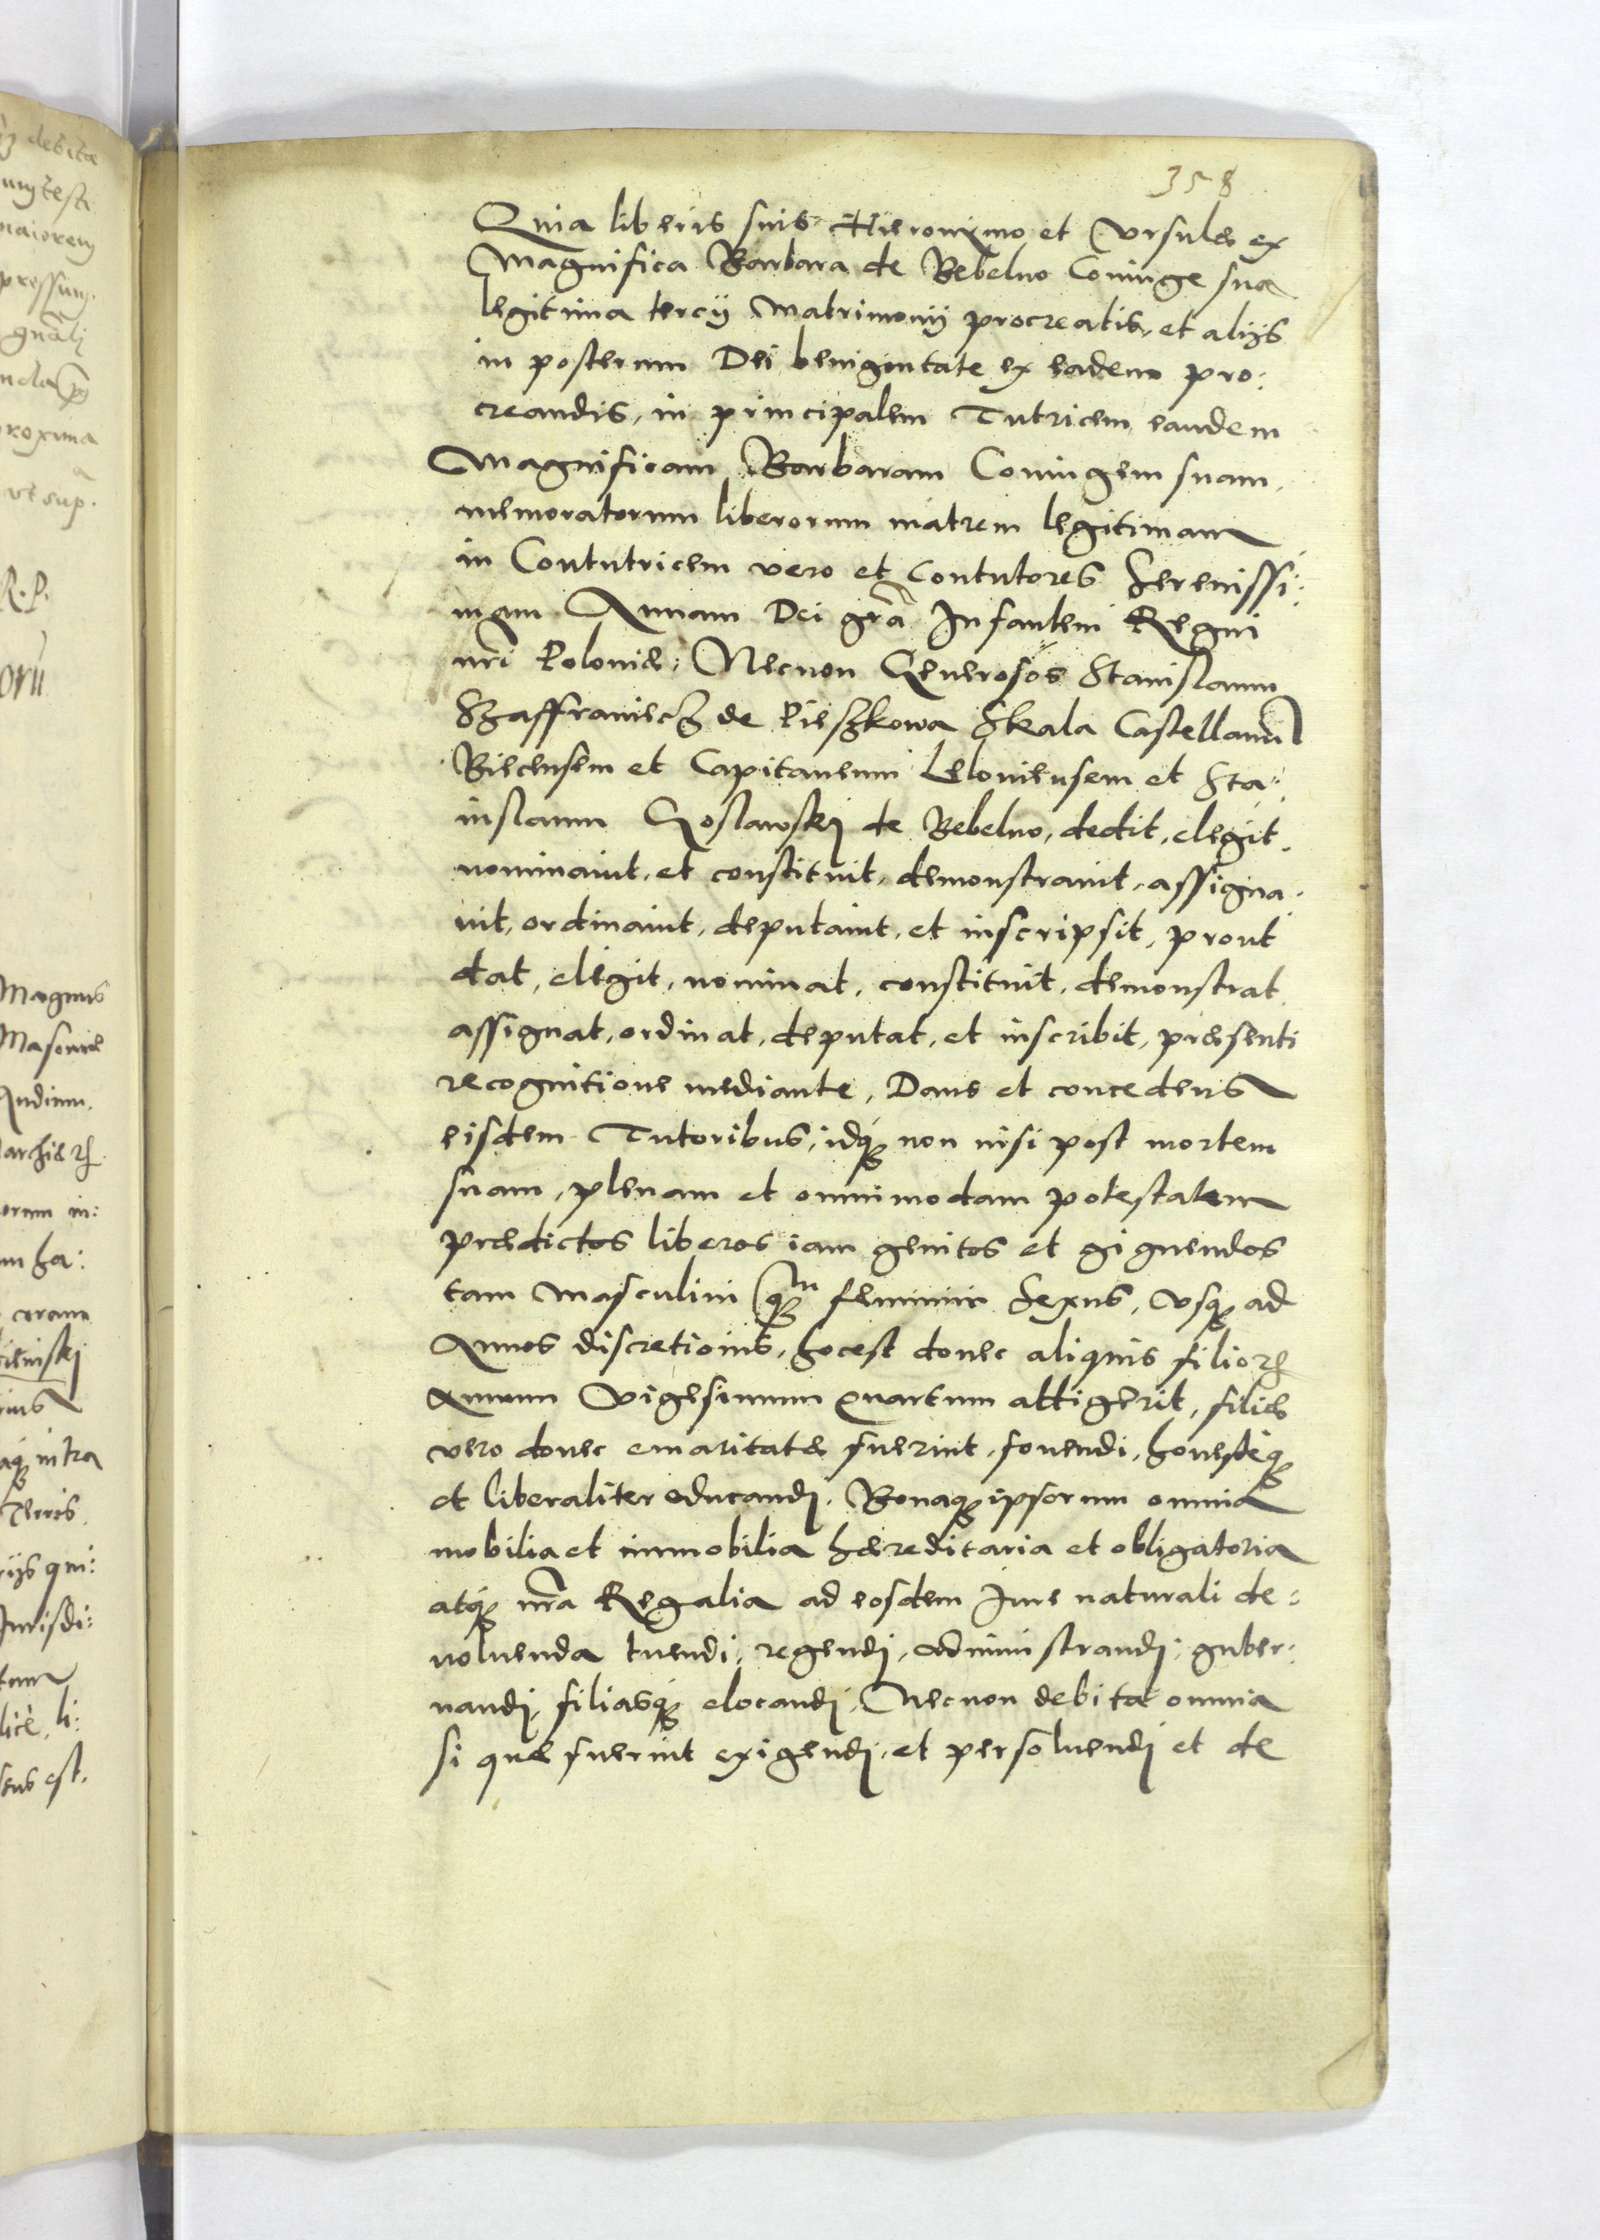 358
Quia liberis suis Hieronymo et Vrsulae ex
Magnifica Barbara de Bebelno Coniuge sua
legitima tercij Matrimonij procreatis, et alijs
in posterum Dei benignitate ex eadem pro:
creandis, in principalem Tutricem eandem
Magnificam Barbaram Coniugem suam,
memoratorum liberorum matrem legitimam
in Contutricem vero et Contutores Serenissi:
mam Annam Dei gra Infantem Regni
nri Poloniae, Necnon Generosos Stanislaum
Szaffraniecz de Pieszkowa Skala Castellanum
Biecensem et Capitaneum Leloviensem et Sta:
nislaum Goslawskj de Bebelno, dedit, elegit,
nominauit, et constituit, demonstrauit, assigna:
uit, ordinauit, deputauit, et inscripsit, prout
dat, elegit, nominat, constituit, demonstrat,
assignat, ordinat, deputat, et inscribit, praesenti
recognitione mediante, Dans et concedens
eisdem Tutoribus, idq non nisi post mortem
suam, plenam et omnimodam potestatem
praedictos liberos iam genitos et gignendos
tam Masculini qm feminini Sexus, vsq ad
Annos discretionis, hocest donec aliquis filior
Annum Vigesimum Quartum attigerit, filiae
vero donec emaritatae fuerint, fouendi, honesteq
et liberaliter educandj, Bonaq ipsorum omnia
mobilia et immobilia haereditaria et obligatoria
atq nra Regalia ad eosdem Iure naturali de:
voluenda tuendi, regendj, administrandj, guber:
nandj, filiasq elocandj, Necnon debita omnia
si quae fuerint exigendj, et persoluendj et de